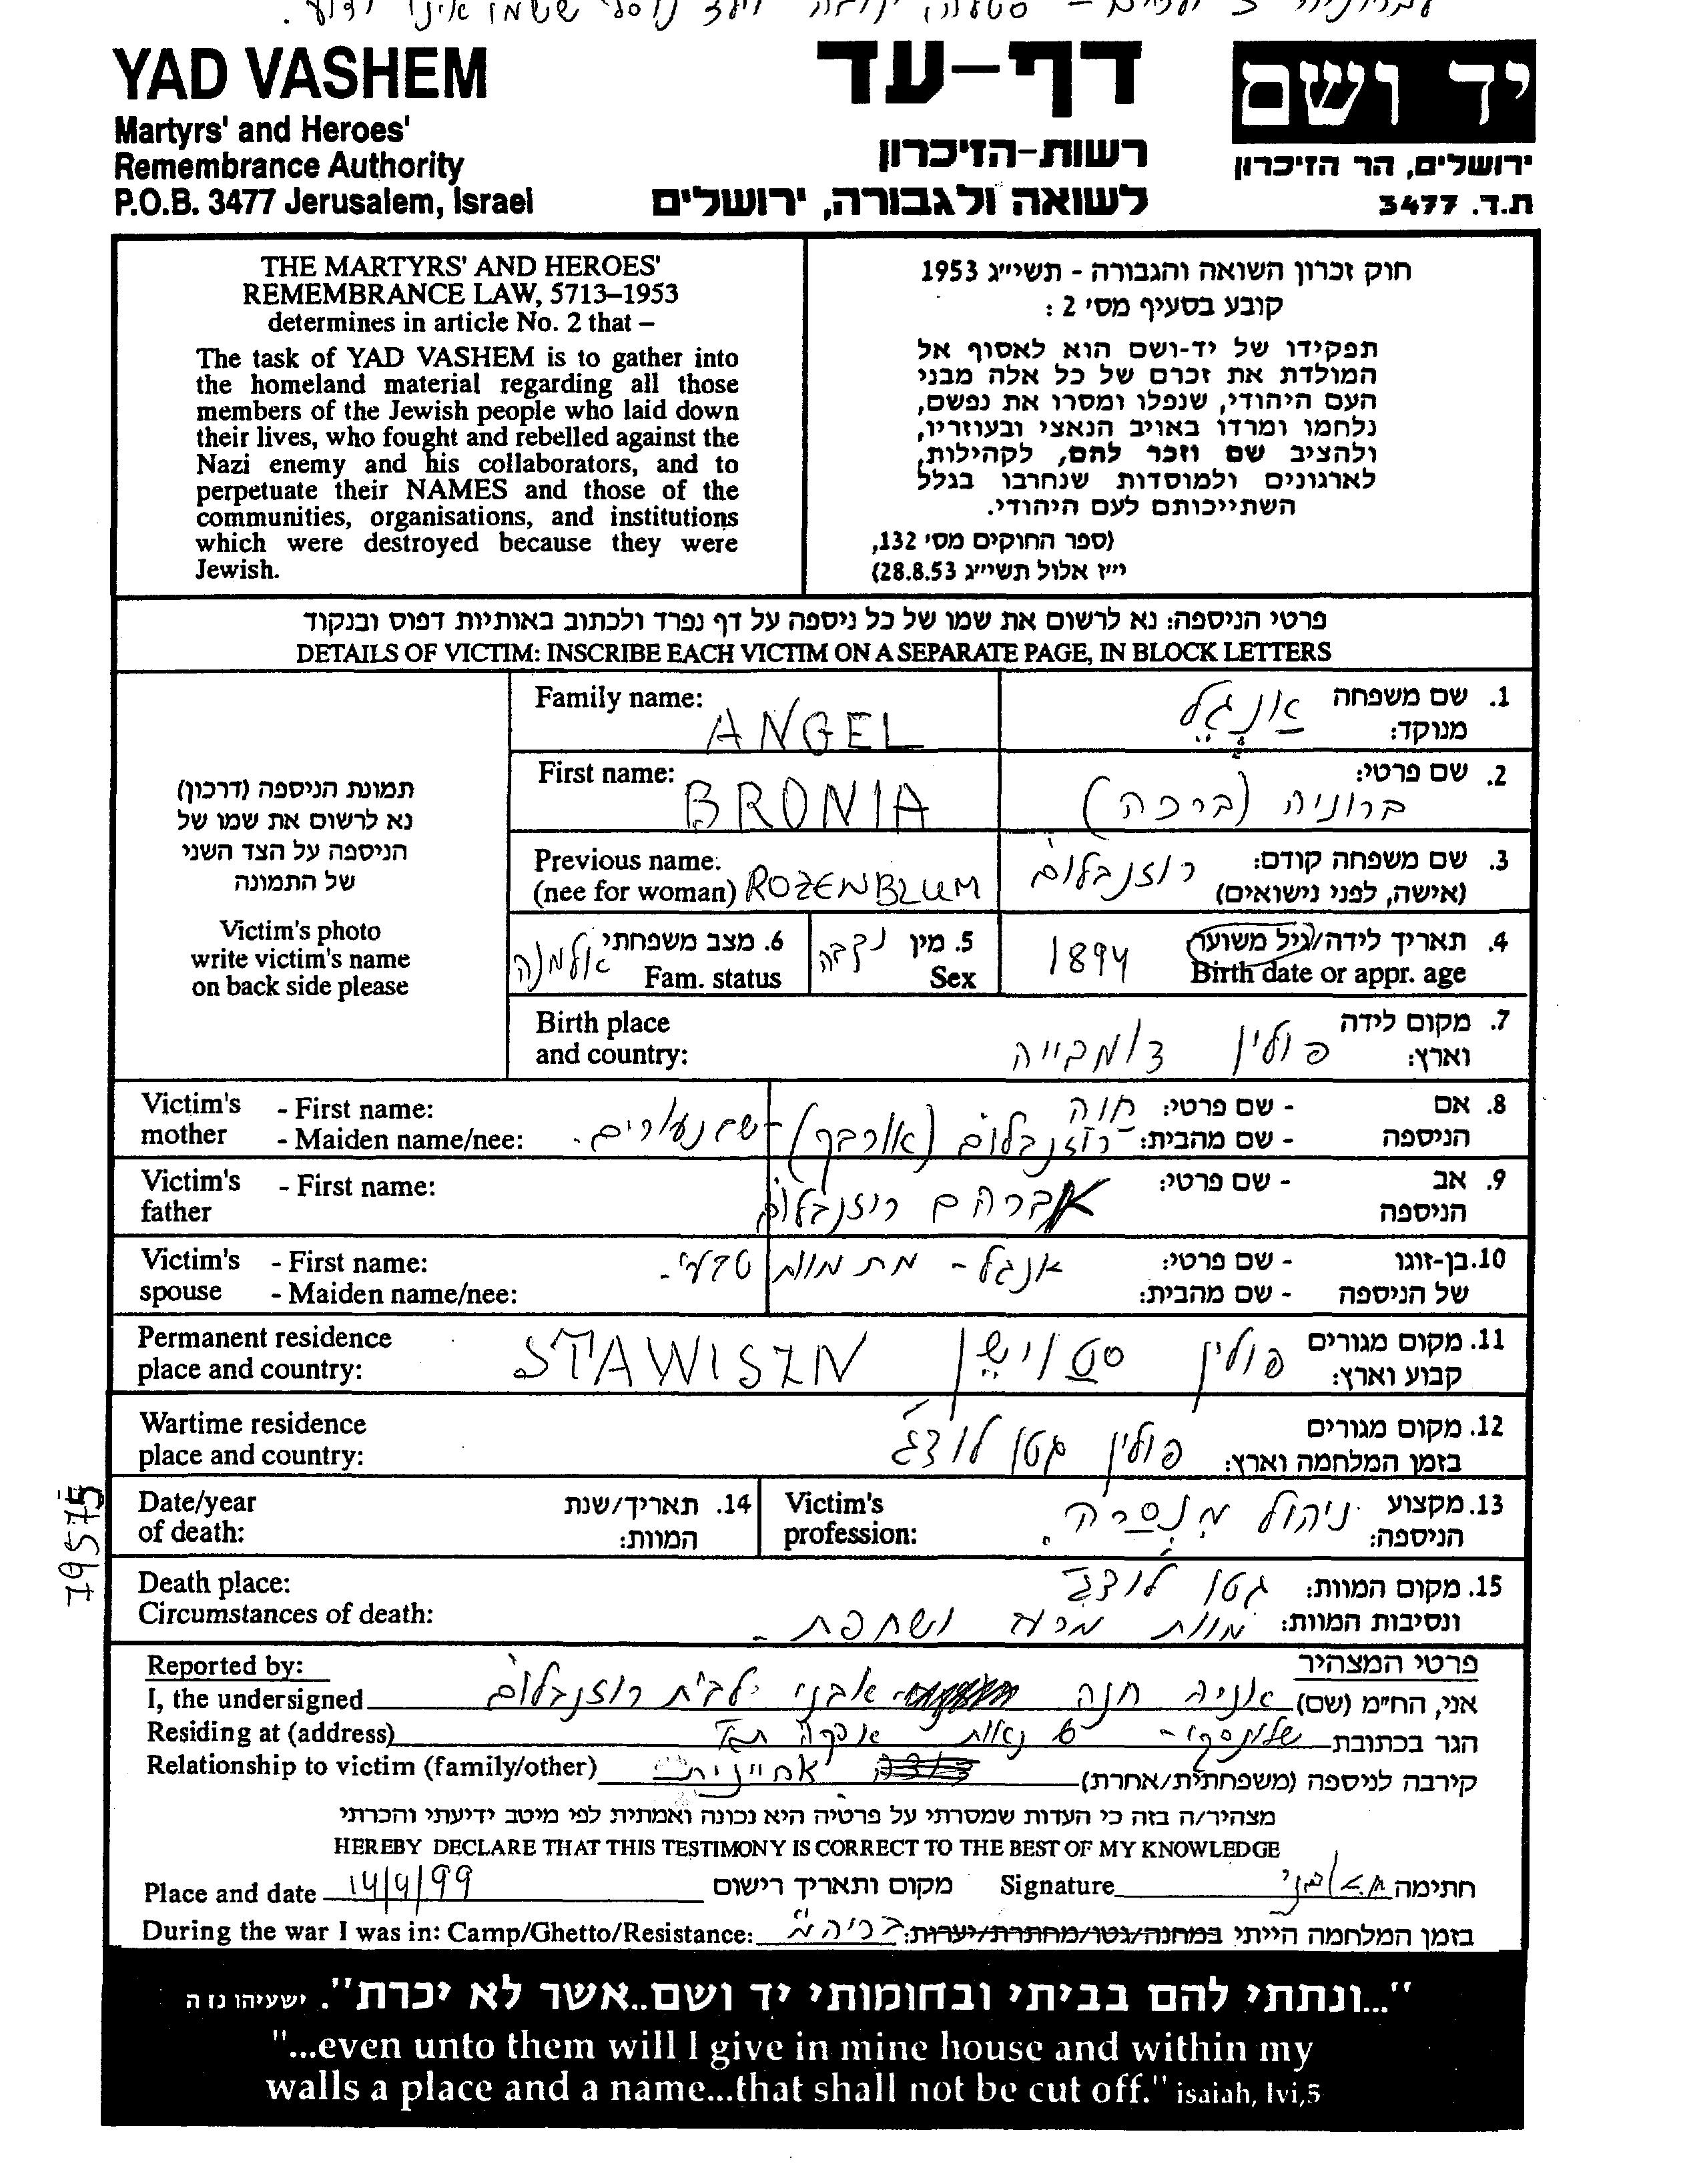 לברוניה 3 ילדים – סטלה, יהודה וילד נוסף ששמו אינו ידוע.
YAD VASHEM
Martyrs' and Heroes'
Remembrance Authority
P.O.B. 3477 Jerusalem, Israel
דף-עד
רשות-הזיכרון
לשואה ולגבורה, ירושלים
יד ושם
ירושלים, הר הזיכרון
ת.ד. 3477
THE MARTYRS' AND HEROES'
REMEMBRANCE LAW, 5713–1953
determines in article No. 2 that –
The task of YAD VASHEM is to gather into
the homeland material regarding all those
members of the Jewish people who laid down
their lives, who fought and rebelled against the
Nazi enemy and his collaborators, and to
perpetuate their NAMES and those of the
communities, organisations, and institutions
which were destroyed because they were
Jewish.
חוק זכרון השואה והגבורה - תשי״ג 1953
קובע בסעיף מס' 2 :
תפקידו של יד-ושם הוא לאסוף אל
המולדת את זכרם של כל אלה מבני
העם היהודי, שנפלו ומסרו את נפשם,
נלחמו ומרדו באויב הנאצי ובעוזריו,
ולהציב שם וזכר להם, לקהילות,
לארגונים ולמוסדות שנחרבו בגלל
השתייכותם לעם היהודי.
(ספר החוקים מס' 132,
י״ז אלול תשי״ג 28.8.53)
פרטי הניספה: נא לרשום את שמו של כל ניספה על דף נפרד ולכתוב באותיות דפוס ובנקוד
DETAILS OF VICTIM: INSCRIBE EACH VICTIM ON A SEPARATE PAGE, IN BLOCK LETTERS
תמונת הניספה (דרכון)
נא לרשום את שמו של
הניספה על הצד השני
של התמונה
Victim's photo
write victim's name
on back side please
1. שם משפחה מנוקד: אַנְגֵל
Family name: ANGEL
2. שם פרטי: ברוניה (ברכה)
First name: BRONIA
3. שם משפחה קודם: רוזנבלום
(אישה, לפני נישואים)
Previous name:
(nee for woman) ROZENBLUM
4. תאריך לידה/גיל משוער 1894
Birth date or appr. age
5. מין נקבה
Sex
6. מצב משפחתי אלמנה
Fam. status
7. מקום לידה וארץ: פולין דומבייה
Birth place
and country:
8. אם הניספה - שם פרטי: חוה
- שם מהבית: רוזנבלום (אורבך) - שם נעורים.
Victim's mother - First name:
- Maiden name/nee:
9. אב הניספה - שם פרטי: אברהם רוזנבלום
Victim's father - First name:
10. בן-זוגו של הניספה - שם פרטי: אנגל - מת מוות טבעי.
- שם מהבית:
Victim's spouse - First name:
- Maiden name/nee:
11. מקום מגורים קבוע וארץ: פולין סטוישן STAWISZN
Permanent residence
place and country:
12. מקום מגורים בזמן המלחמה וארץ: פולין גטו לודג'
Wartime residence
place and country:
13. מקצוע הניספה: ניהול מנסרה.
Victim's profession:
14. תאריך/שנת המוות:
Date/year of death:
15. מקום המוות: גטו לודג'
ונסיבות המוות: מוות מרעב ושחפת -
Death place:
Circumstances of death:
79575
פרטי המצהיר
Reported by:
אני, הח״מ (שם) אניה חנה אבני לבית רוזנבלום
I, the undersigned
הגר בכתובת שלונסקי - 6 נאות אפקה תא
Residing at (address)
קירבה לניספה (משפחתית/אחרת) אחיינית
Relationship to victim (family/other)
מצהיר/ה בזה כי העדות שמסרתי על פרטיה היא נכונה ואמתית לפי מיטב ידיעתי והכרתי
HEREBY DECLARE THAT THIS TESTIMONY IS CORRECT TO THE BEST OF MY KNOWLEDGE
Place and date 14/4/99 מקום ותאריך רישום Signature ח. אבני חתימה
בזמן המלחמה הייתי במחנה/גטו/מחתרת/יערות: בריה״מ
During the war I was in: Camp/Ghetto/Resistance:
"...ונתתי להם בביתי ובחומותי יד ושם..אשר לא יכרת". ישעיהו נו ה
"...even unto them will I give in mine house and within my
walls a place and a name...that shall not be cut off." isaiah, lvi,5